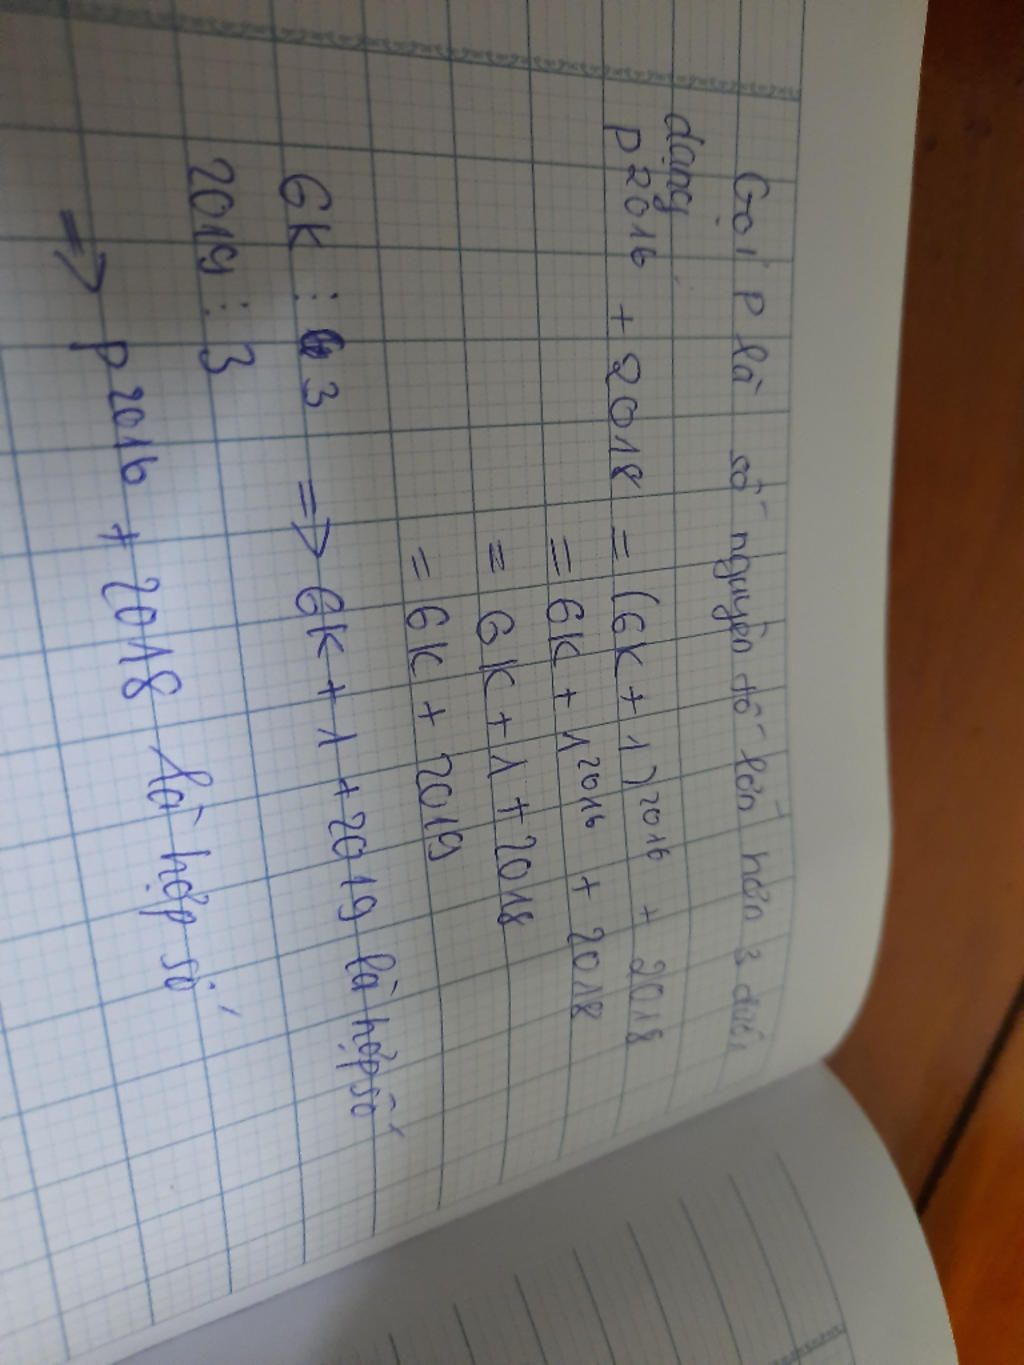 Gọi p là số nguyên tố lớn hơn 3 dưới
dạng
p²⁰¹⁶ + 2018 = (6k + 1)²⁰¹⁶ + 2018
= 6k + 1²⁰¹⁶ + 2018
= 6k + 1 + 2018
= 6k + 2019
6k ⋮ 3 => 6k + 1 + 2019 là hợp số
2019 ⋮ 3
=> p²⁰¹⁶ + 2018 là hợp số